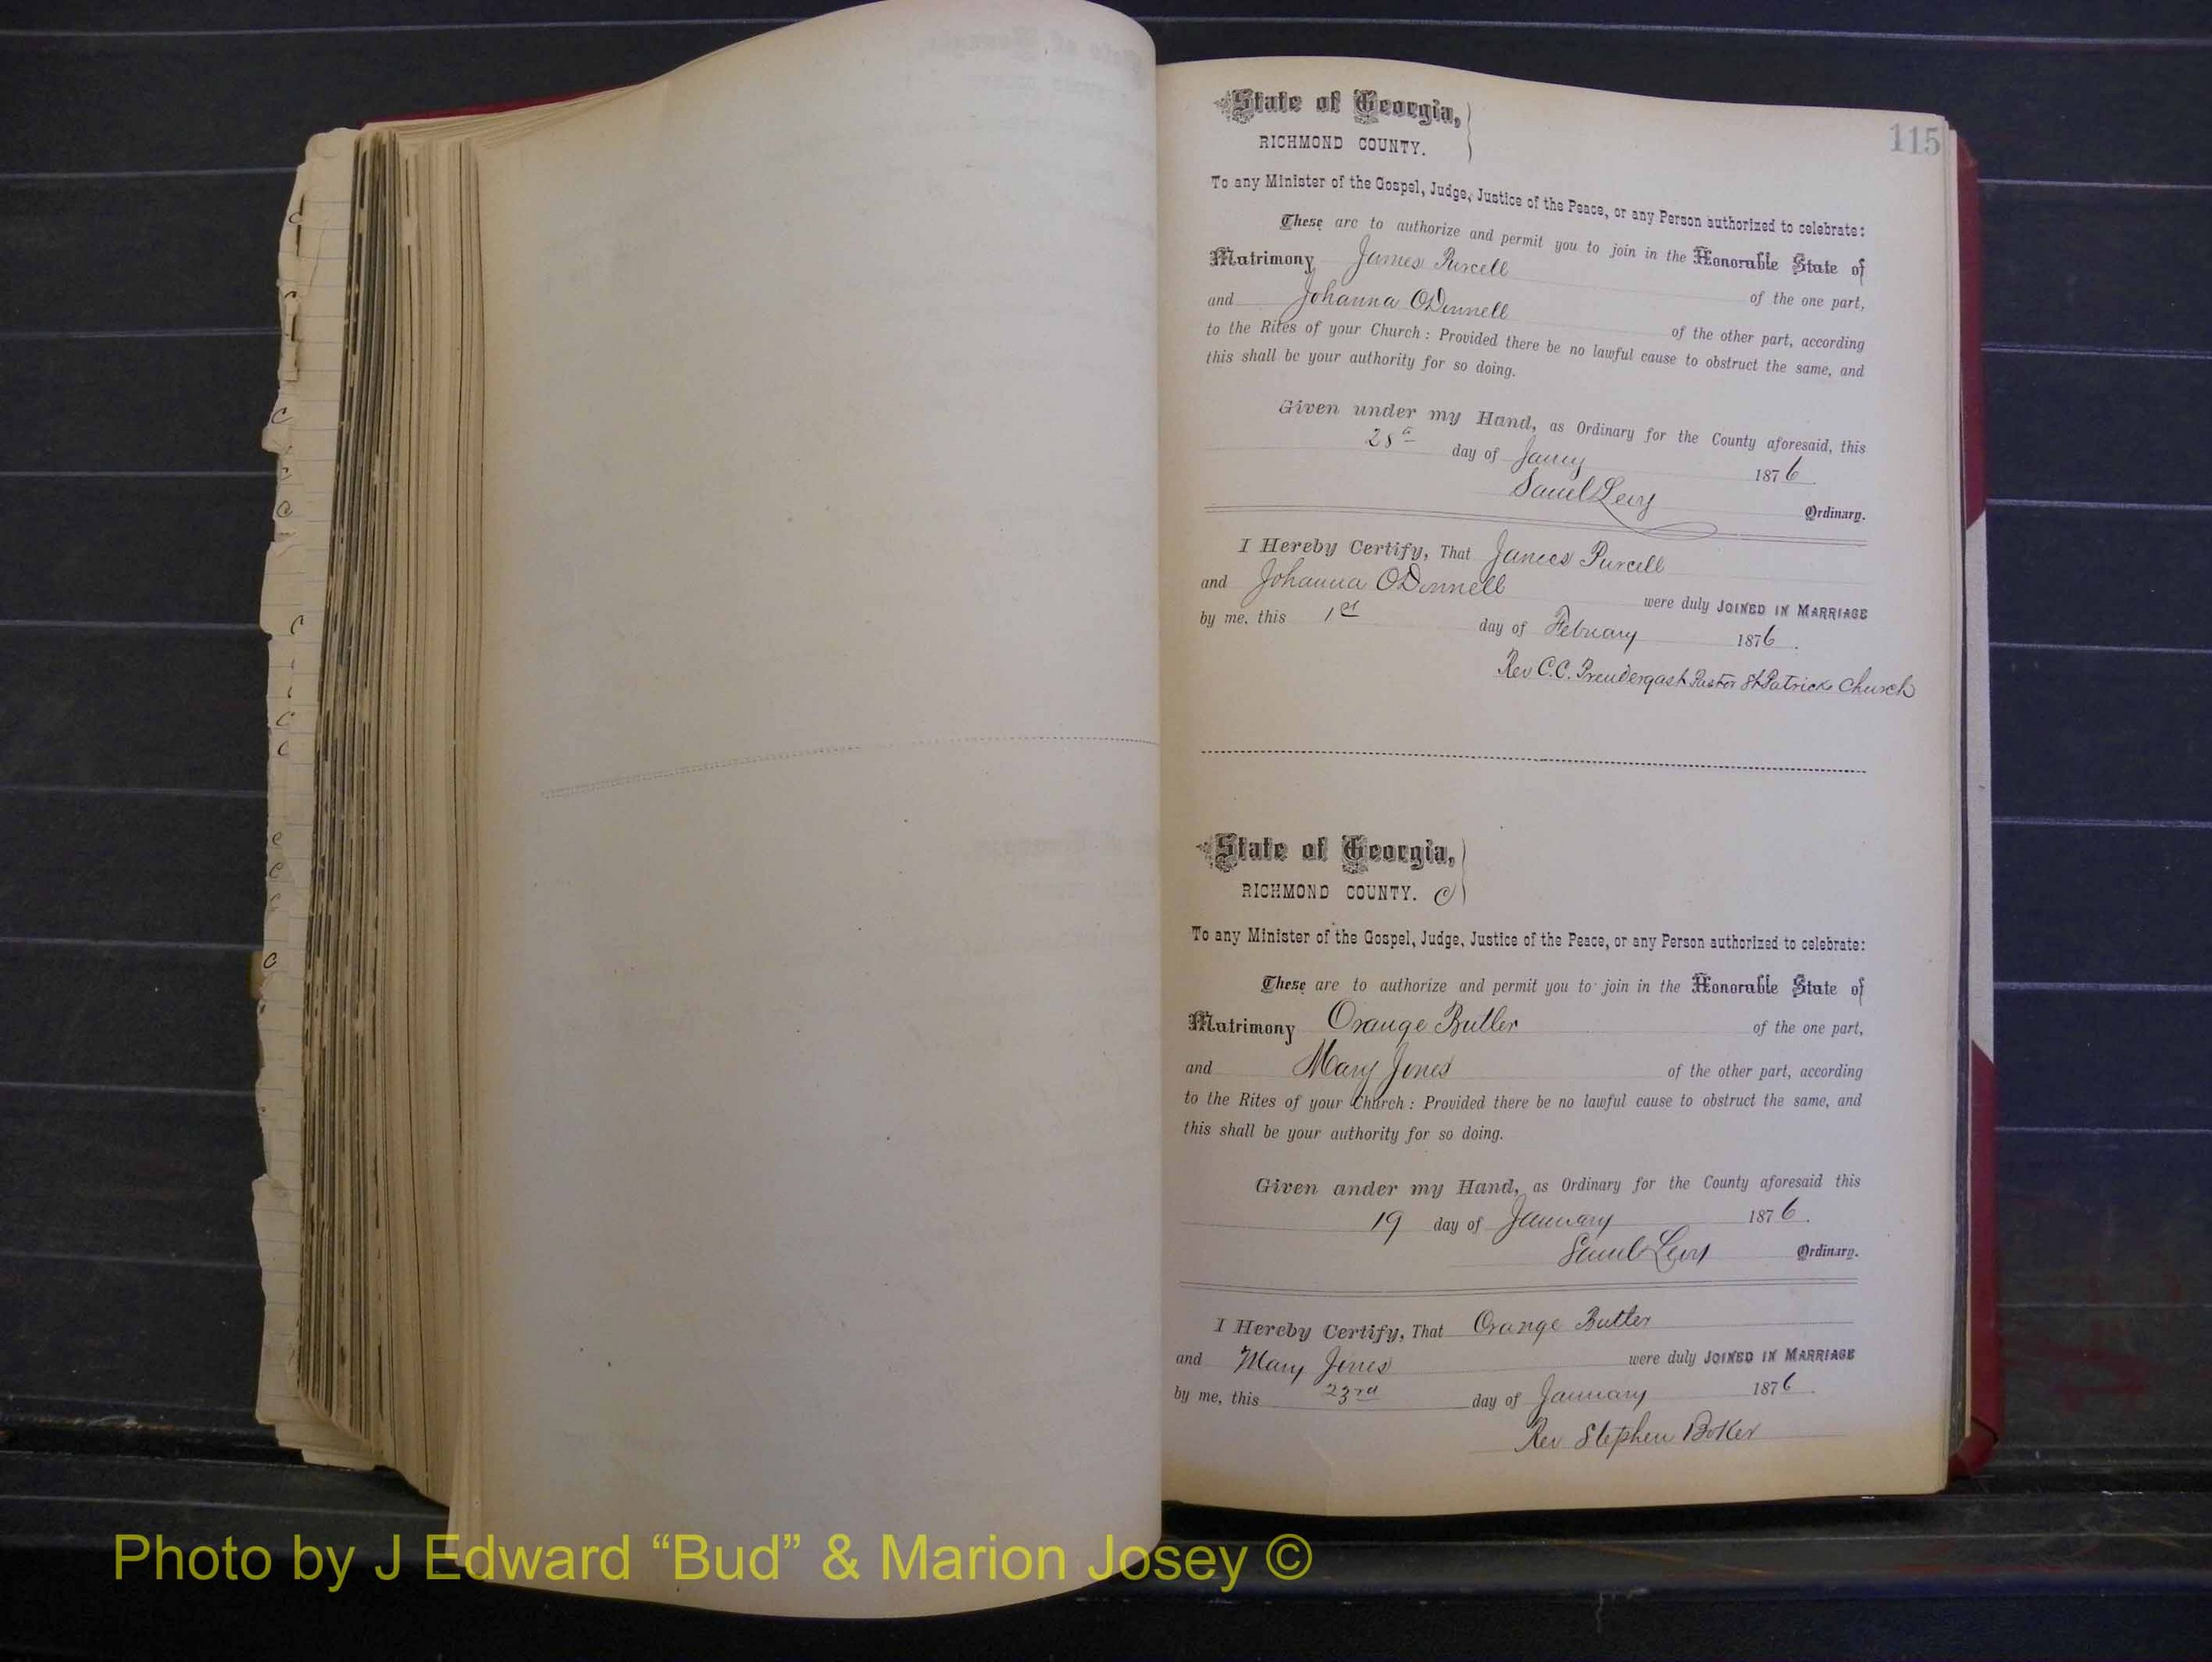 115
State of Georgia,
RICHMOND COUNTY.
To any Minister of the Gospel, Judge, Justice of the Peace, or any Person authorized to celebrate:
These are to authorize and permit you to join in the Honorable State of
Matrimony James Purcell of the one part,
and Johanna ODonnell of the other part, according
to the Rites of your Church: Provided there be no lawful cause to obstruct the same, and
this shall be your authority for so doing.
Given under my Hand, as Ordinary for the County aforesaid, this
day of Jany 1876
Samel Levy Ordinary.
I Hereby Certify, That James Purcell
and Johanna ODonnell were duly JOINED IN MARRIAGE
by me, this 1st day of February 1876.
Rev C.C. Prendergast Pastor St Patricks Church
State of Georgia,
RICHMOND COUNTY. C
To any Minister of the Gospel, Judge, Justice of the Peace, or any Person authorized to celebrate:
These are to authorize and permit you to join in the Honorable State of
Matrimony Orange Butler of the one part,
and Mary Jones of the other part, according
to the Rites of your Church: Provided there be no lawful cause to obstruct the same, and
this shall be your authority for so doing.
Given under my Hand, as Ordinary for the County aforesaid this
19 day of January 1876.
Samel Levy Ordinary.
I Hereby Certify, That Orange Butler
and Mary Jones were duly JOINED IN MARRIAGE
by me, this 23rd day of January 1876.
Rev Stephen
Photo by J Edward “Bud” & Marion Josey ©